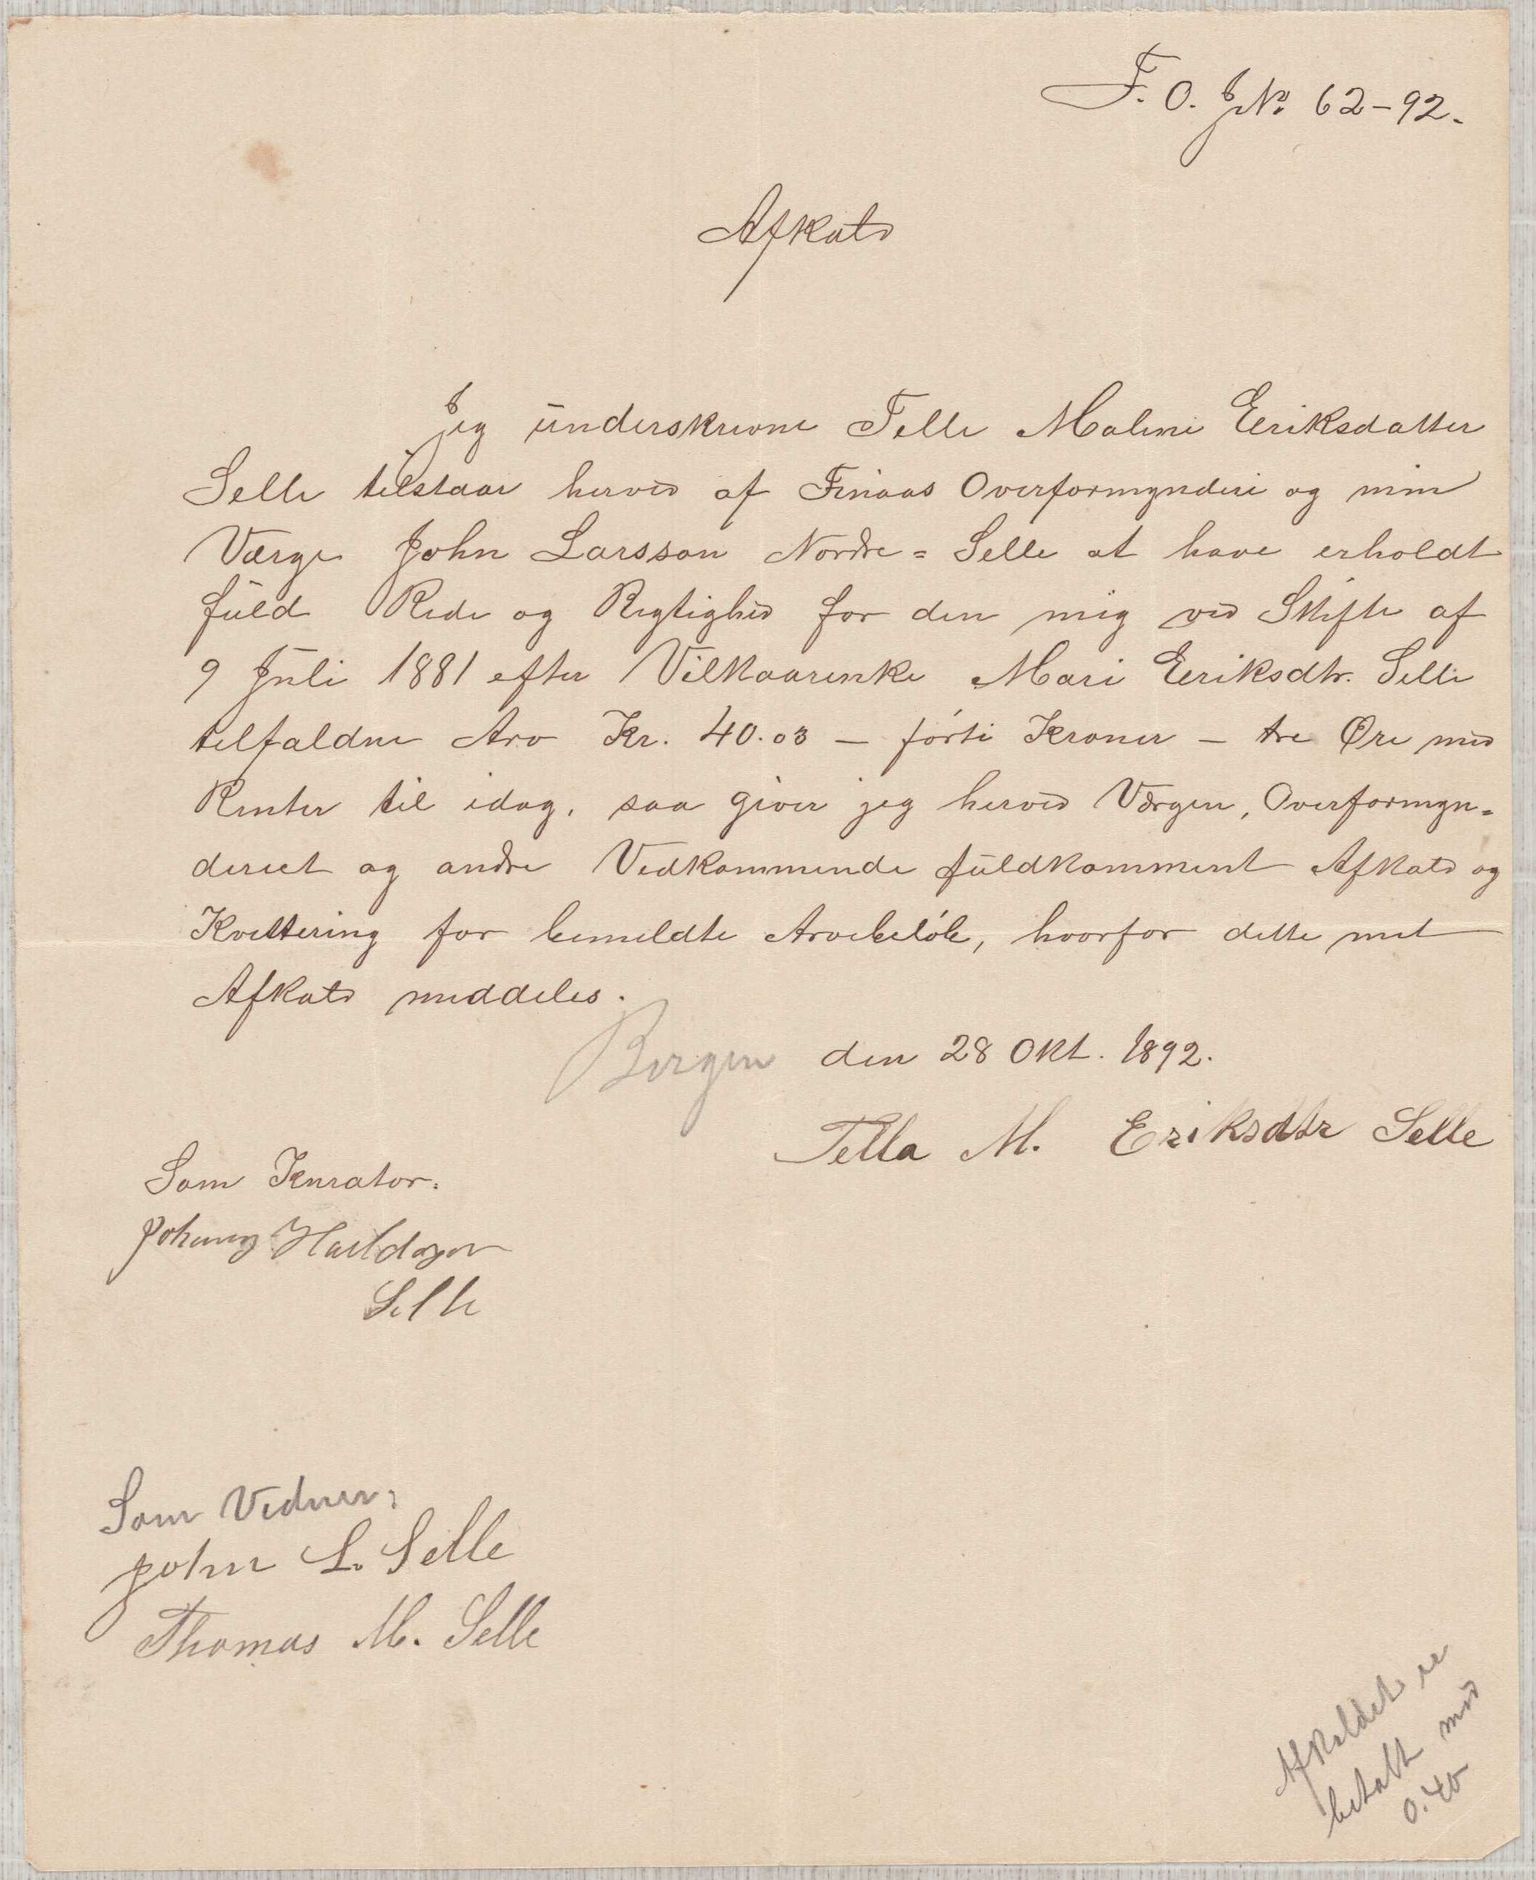 F. O. J. No. 62-92.
Afkald
Jeg underskrevne Telle Maline Eeriksdatter
Selle tilstaar herved af Finaas Overformynderi og min
Værge John Larsson Nordre=Selle at have erholdt
fuld Rede og Rigtighed for den mig ved Skifte af
9 Juli 1881 efter Vilkaarenke Mari Eeriksdtr. Selle
tilfaldne Arv Kr. 40.03 — førti Kroner — tre Øre med
Renter til idag, saa giver jeg herved Værgen, Overformyn=
deriet og andre Vedkommende fuldkomment Afkald og
Kvittering for bemeldte Arvebeløb, hvorfor dette mit
Afkald meddeles.
Bergen den 28 Okt. 1892.
Tella M. Eriksdtr Selle
Som Kurator:
Selle
Som Vidner:
John L. Selle
Thomas M. Selle
Afkaldet er
betalt med
0.40